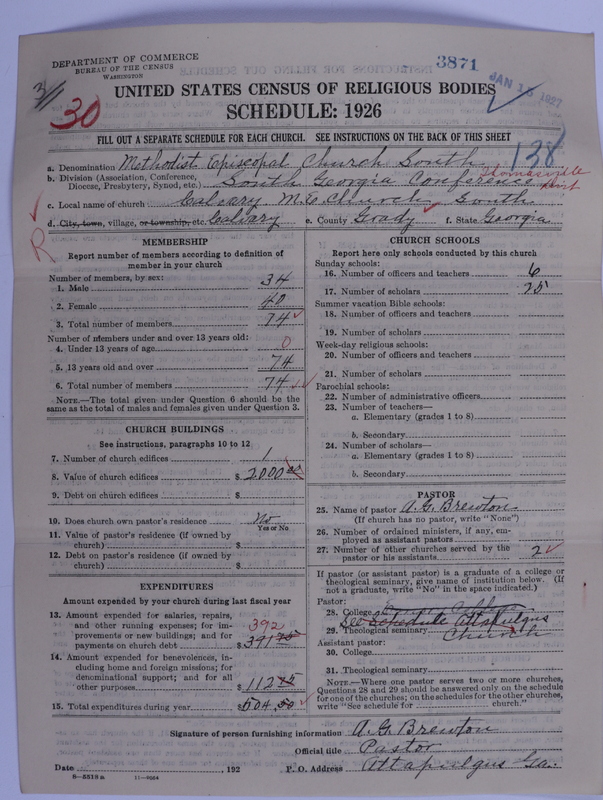 DEPARTMENT OF COMMERCE
BUREAU OF THE CENSUS
WASHINGTON
3871
JAN 15 1927
3/1
30
UNITED STATES CENSUS OF RELIGIOUS BODIES
SCHEDULE: 1926
FILL OUT A SEPARATE SCHEDULE FOR EACH CHURCH. SEE INSTRUCTIONS ON THE BACK OF THIS SHEET
138
a. Denomination Methodist Episcopal Church South
b. Division (Association, Conference, Diocese, Presbytery, Synod, etc.) South Georgia Conference Thomasville Dist
c. Local name of church Calvary M. E. Church South
d. City, town, village, or township, etc. Calvary e. County Grady f. State Georgia
R
MEMBERSHIP
Report number of members according to definition of member in your church
Number of members, by sex:
1. Male 34
2. Female 40
3. Total number of members 74
Number of members under and over 13 years old:
4. Under 13 years of age 0
5. 13 years old and over 74
6. Total number of members 74
NOTE.—The total given under Question 6 should be the same as the total of males and females given under Question 3.
CHURCH BUILDINGS
See instructions, paragraphs 10 to 12
7. Number of church edifices 1
8. Value of church edifices $ 2000 00
9. Debt on church edifices $
10. Does church own pastor's residence No
Yes or No
11. Value of pastor's residence (if owned by church) $
12. Debt on pastor's residence (if owned by church) $
EXPENDITURES
Amount expended by your church during last fiscal year
13. Amount expended for salaries, repairs, and other running expenses; for improvements or new buildings; and for payments on church debt 392 $ 391 75
14. Amount expended for benevolences, including home and foreign missions; for denominational support; and for all other purposes $ 112 75
15. Total expenditures during year $ 504.50
CHURCH SCHOOLS
Report here only schools conducted by this church
Sunday schools:
16. Number of officers and teachers 6
17. Number of scholars 75
Summer vacation Bible schools:
18. Number of officers and teachers
19. Number of scholars
Week-day religious schools:
20. Number of officers and teachers
21. Number of scholars
Parochial schools:
22. Number of administrative officers
23. Number of teachers—
a. Elementary (grades 1 to 8)
b. Secondary
24. Number of scholars—
a. Elementary (grades 1 to 8)
b. Secondary
PASTOR
25. Name of pastor A. G. Brewton
(If church has no pastor, write "None")
26. Number of ordained ministers, if any, employed as assistant pastors
27. Number of other churches served by the pastor or his assistants 2
If pastor (or assistant pastor) is a graduate of a college or theological seminary, give name of institution below. (If not a graduate, write "No" in the space indicated.)
Pastor:
28. College
See Schedule Attapulgus
29. Theological seminary Church
Assistant pastor:
30. College
31. Theological seminary
NOTE.—Where one pastor serves two or more churches, Questions 28 and 29 should be answered only on the schedule for one of the churches; on the schedules for the other churches, write "See schedule for church."
Signature of person furnishing information A. G. Brewton
Official title Pastor
Date , 192 P. O. Address Attapulgus Ga.
8—5518a 11—9064